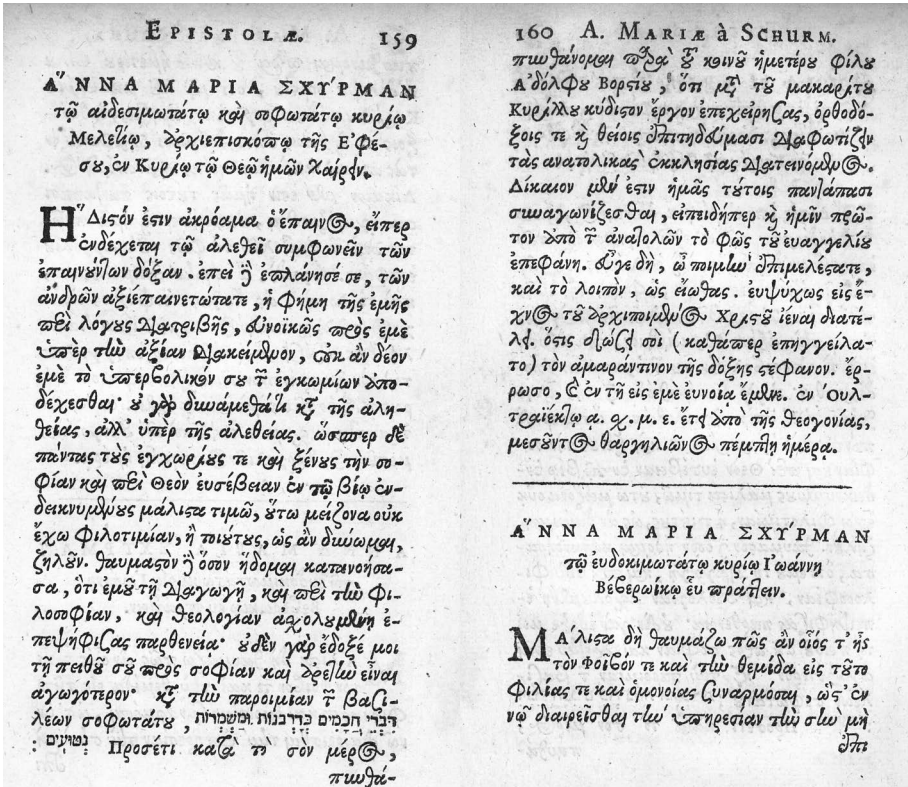 EPISTOLÆ. 159
Ἄ̓ΝΝΑ ΜΑΡΙΑ ΣΧΎΡΜΑΝ
τῷ αἰδεσιμωτάτῳ καὶ σοφωτάτῳ κυρίῳ
Μελετίῳ, ἀρχιεπισκόπῳ τῆς Ἐφέ-
σου, ἐν Κυρίῳ τῷ Θεῷ ἡμῶν Χαίρειν.
Ἥ Διστόν ἐστιν ἀκρόαμα ὁ ἔπαινος, εἴπερ
ἐνδέχεται τῷ ἀλεθεῖ συμφωνεῖν τῶν
ἐπαινούντων δόξαν. ἐπεὶ ἢ ἐπλάνησέ σε, τῶν
ἀνδρῶν ἀξιέπαινετώτατε, ἡ φήμη τῆς ἐμῆς
περὶ λόγους διατριβῆς, εὐνοϊκῶς πρὸς ἐμὲ
ὑπὲρ τὴν ἀξίαν διακείμενον, οὐκ ἂν δέον
ἐμὲ τὸ ὑπερβολικόν σου τῶν ἐγκωμίων ὑπο-
δέχεσθαι· οὐ γὰρ δυνάμεθά τι κατὰ τῆς ἀλη-
θείας, ἀλλ' ὑπὲρ τῆς ἀλεθείας. ὥσπερ δὲ
πάντας τοὺς ἐγχωρίους τε καὶ ξένους τὴν σο-
φίαν καὶ περὶ Θεὸν ἐυσέβειαν ἐν τῷ βίῳ ἐν-
δεικνυμένους μάλιστα τιμῶ, οὕτω μείζονα οὐκ
ἔχω φιλοτιμίαν, ἢ τοιούτους, ὡς ἂν δύνωμαι,
ζηλοῦν. θαυμαστὸν ἢ ὅσον ἥδομαι κατανοήσα-
σα, ὅτι ἐμοῦ τῇ διαγωγῇ, καὶ περὶ τὴν φι-
λοσοφίαν, καὶ θεολογίαν ἀχολουμένη ἐ-
πεψήφισας παρθενείᾳ· οὐδὲν γὰρ ἔδοξέ μοι
τῇ πειθοῦ σοῦ πρὸς σοφίαν καὶ ἀρετὴν εἶναι
ἀγωγότερον· κατὰ τὴν παροιμίαν τοῦ βασι-
λέων σοφωτάτου, דִּבְרֵי חֲכָמִים כַּדָּרְבֹנוֹת וּמַשְׂמְרוֹת
נְטוּעִים : Προσέτι κατά τι σὸν μέρος,
πυνθά-
160 A. MARIÆ à SCHURM.
πυνθάνομαι παρὰ τοῦ κοινοῦ ἡμετέρου φίλου
Ἀδόλφου Βορσίου, ὅτι μετὰ τοῦ μακαρίτου
Κυρίλλου κύδιστον ἔργον ἐπεχείρησας, ὀρθοδό-
ξοις τε καὶ θείοις ἐπιτηδεύμασι διαφωτίζειν
τὰς ἀνατολικὰς ἐκκλησίας διατεινόμενος.
Δίκαιον μέν ἐστιν ἡμᾶς τούτοις παντάπασι
συναγωνίζεσθαι, ἐπειδήπερ καὶ ἡμῖν πρῶ-
τον ἀπὸ τῶν ἀνατολῶν τὸ φῶς τοῦ ἐυαγγελίου
ἐπεφάνη. εὖγε δὴ, ὦ ποιμὴν ἐπιμελέστατε,
καὶ τὸ λοιπὸν, ὡς εἴωθας. ἐυψύχως εἰς ἔ-
χνος τοῦ ἀρχιποιμένος Χριστοῦ ἰέναι διατέ-
λει. ὅστις δώσει σοὶ (καθάπερ ἐπηγγείλα-
το) τὸν ἀμαράντινον τῆς δόξης στέφανον. ἔρ-
ρωσο, καὶ ἐν τῇ εἰς ἐμὲ ἐυνοίᾳ ἔμμενε. ἐν Οὐλ-
τραϊέκτῳ α. χ. μ. ε. ἔτει ἀπὸ τῆς θεογονίας,
μεσοῦντος θαργηλιῶνος πέμπτῃ ἡμέρᾳ.
Ἄ̓ΝΝΑ ΜΑΡΙΑ ΣΧΎΡΜΑΝ
τῷ ἐυδοκιμωτάτῳ κυρίῳ Ἰωάννῃ
Βεβερωίκῳ ἐῦ πράττειν.
ΜΆλιστα δὴ θαυμάζω πῶς ἂν οἷός τ' ἦς
τὸν Φοῖβόν τε καὶ τὴν θέμιδα εἰς τοῦτο
φιλίας τε καὶ ὁμονοίας ξυναρμόσαι, ὥς' ἐν
νῷ διαιρεῖσθαι τὴν ὑπηρεσίαν τὴν σὴν μὴ
ἐπι